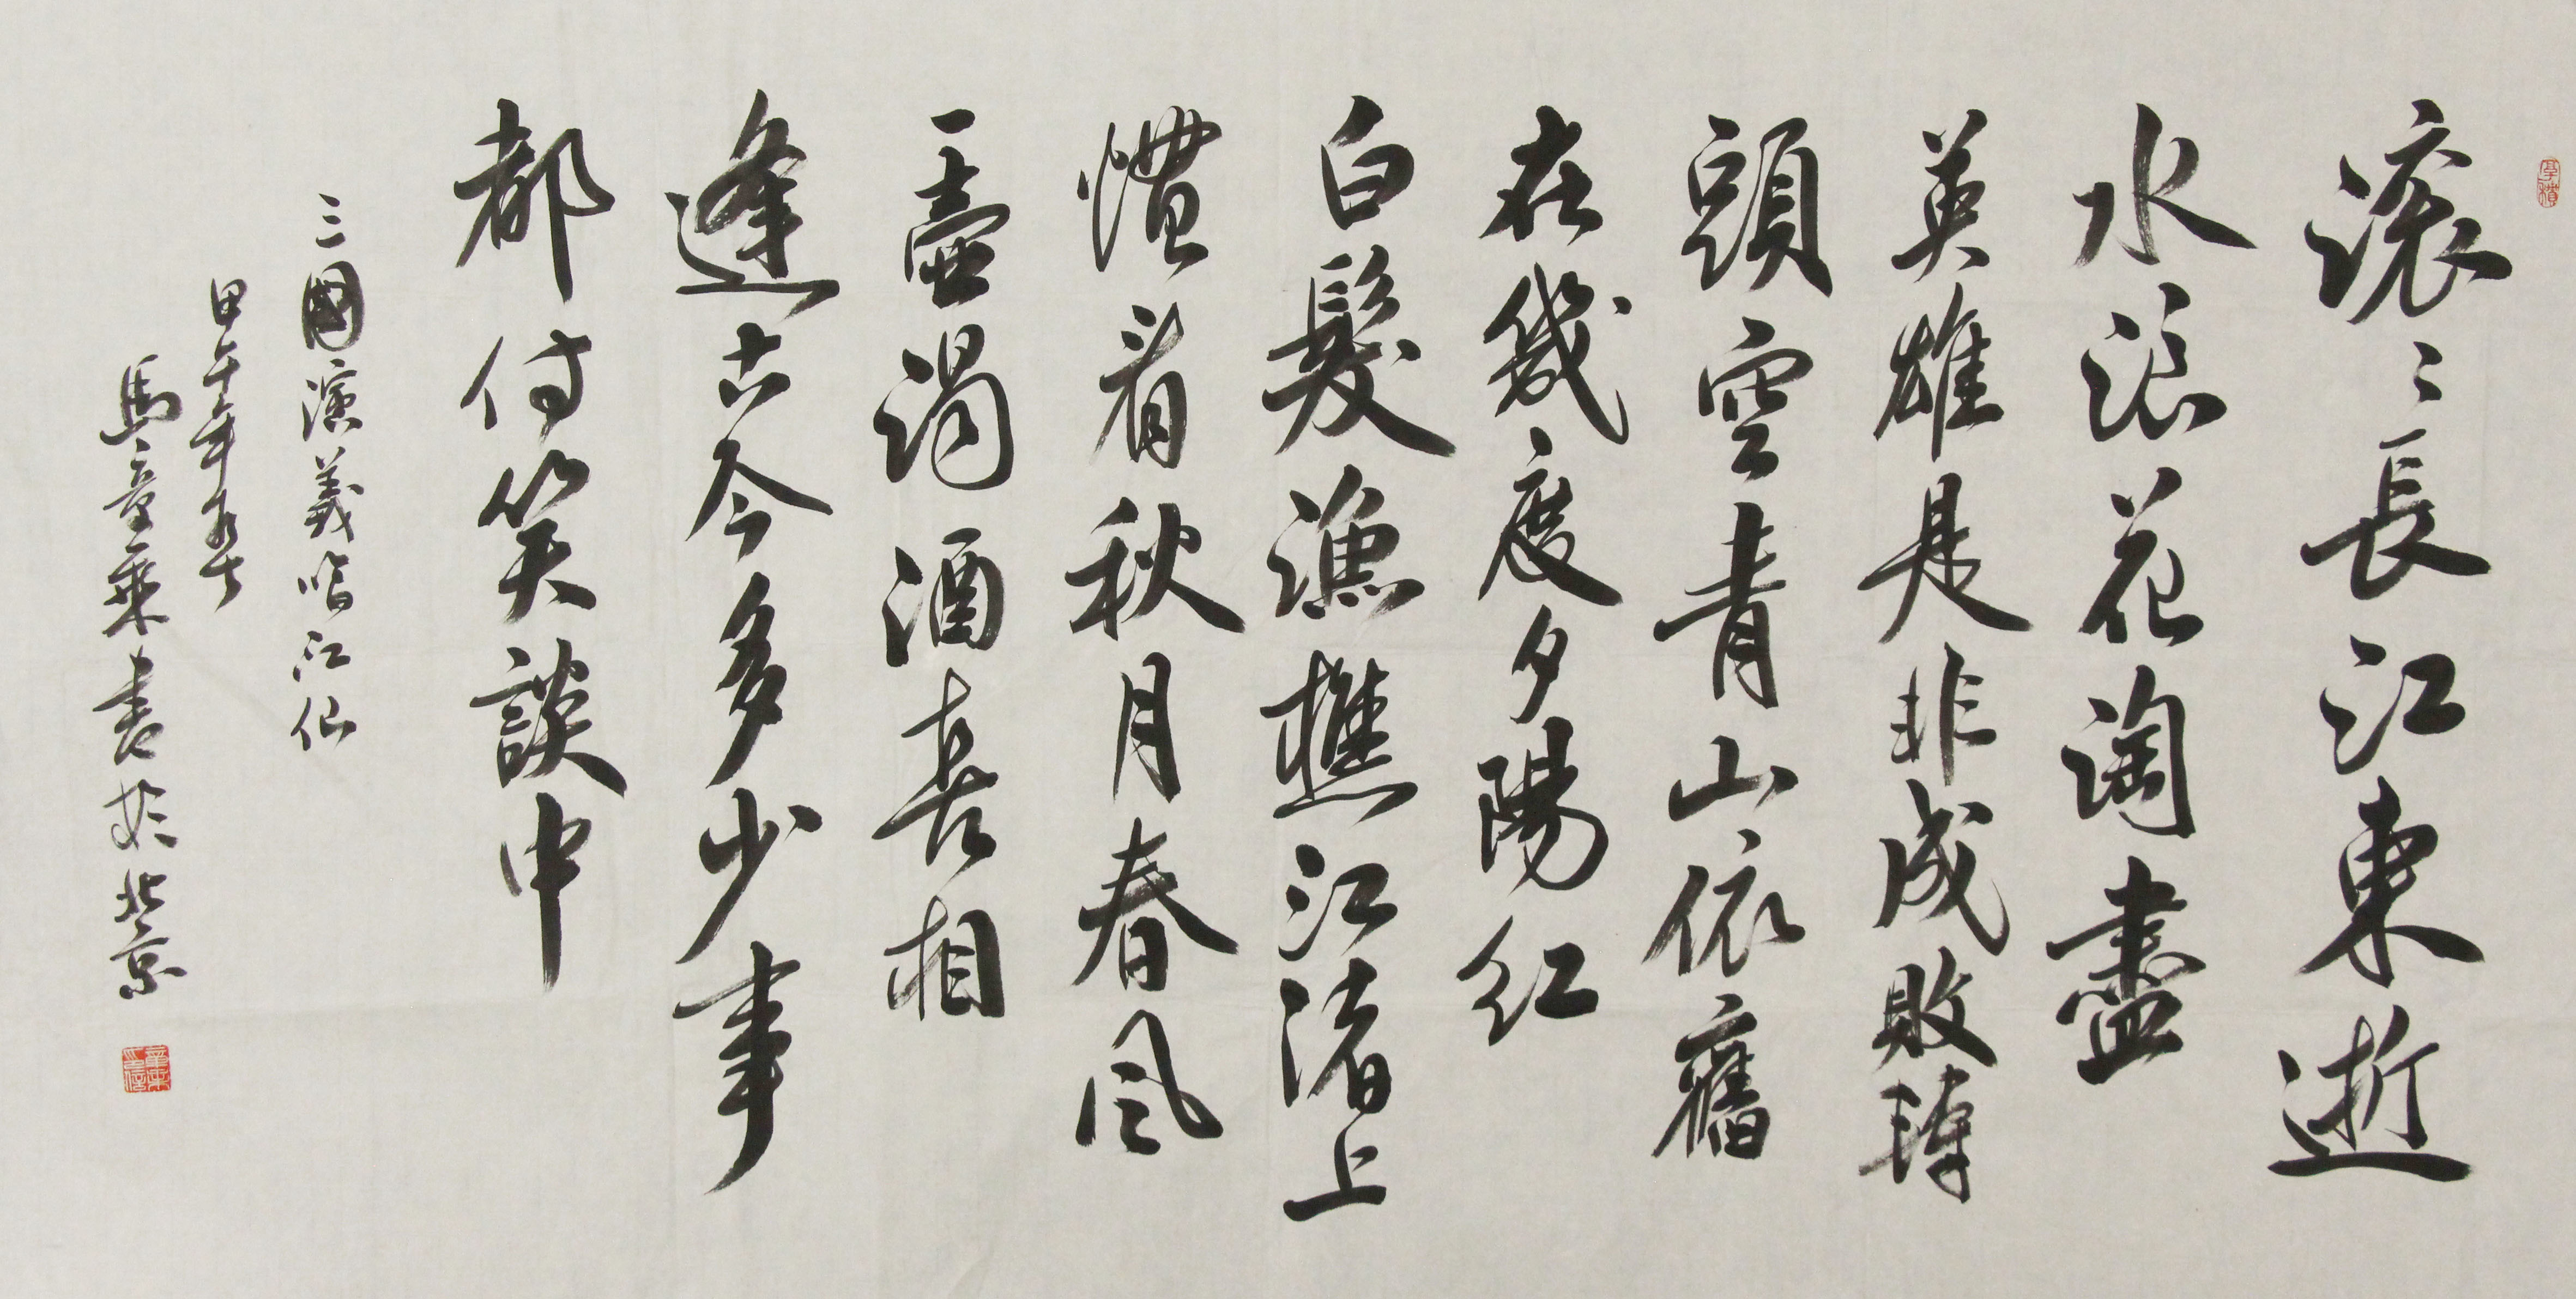 滚〻長江東逝
水浪花淘盡
英雄是非成敗轉
頭空青山依舊
在幾度夕陽紅
白髮漁樵江渚上
慣看秋月春風
一壺濁酒喜相
逢古今多少事
都付笑談中
三國演義臨江仙
甲午年
馬童乘書於北京